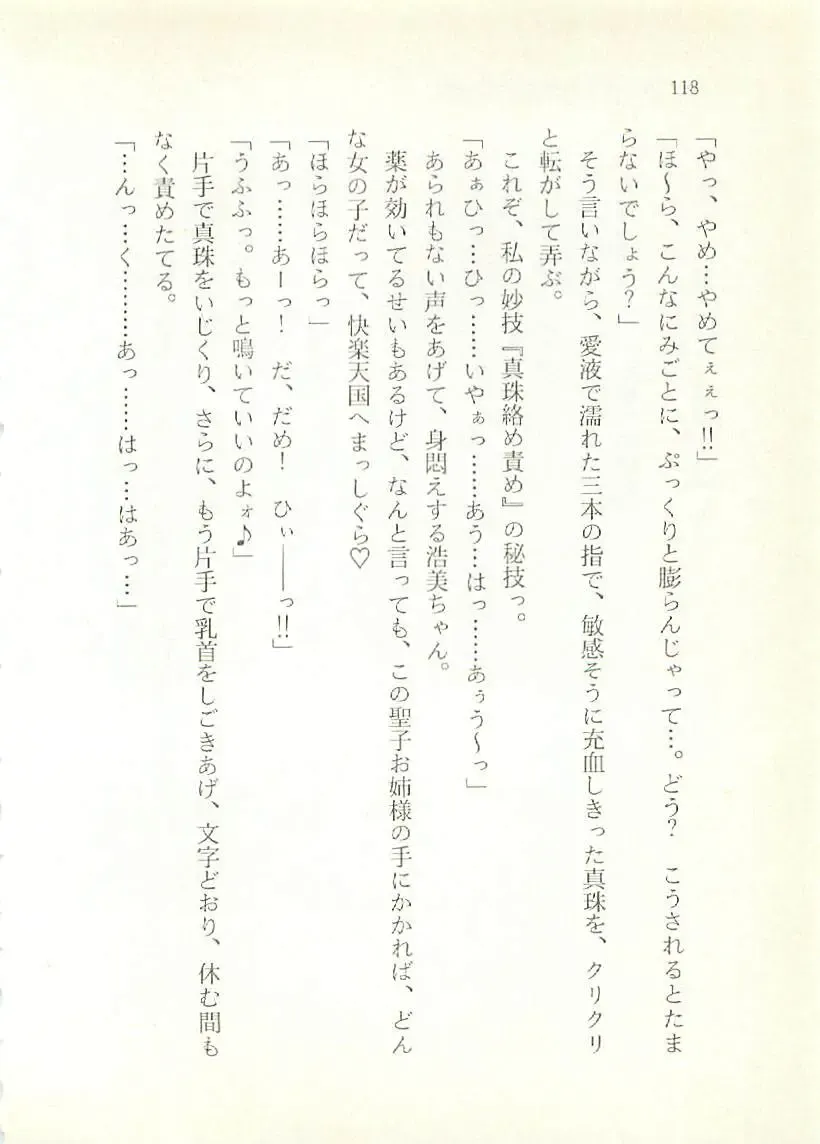 118
「やっ、やめ…やめてぇぇっ!!」
「ほ〜ら、こんなにみごとに、ぷっくりと膨らんじゃって…。どう?　こうされるとたま
らないでしょう?」
　そう言いながら、愛液で濡れた三本の指で、敏感そうに充血しきった真珠を、クリクリ
と転がして弄ぶ。
　これぞ、私の妙技『真珠絡め責め』の秘技っ。
「あぁひっ…ひっ……いやぁっ……あう…はっ……あぅう〜っ」
　あられもない声をあげて、身悶えする浩美ちゃん。
　薬が効いてるせいもあるけど、なんと言っても、この聖子お姉様の手にかかれば、どん
な女の子だって、快楽天国へまっしぐら♡
「ほらほらほらっ」
「あっ……あーっ!　だ、だめ!　ひぃ――っ!!」
「うふふっ。もっと鳴いていいのよォ♪」
　片手で真珠をいじくり、さらに、もう片手で乳首をしごきあげ、文字どおり、休む間も
なく責めたてる。
「…んっ…く………あっ……はっ…はあっ…」